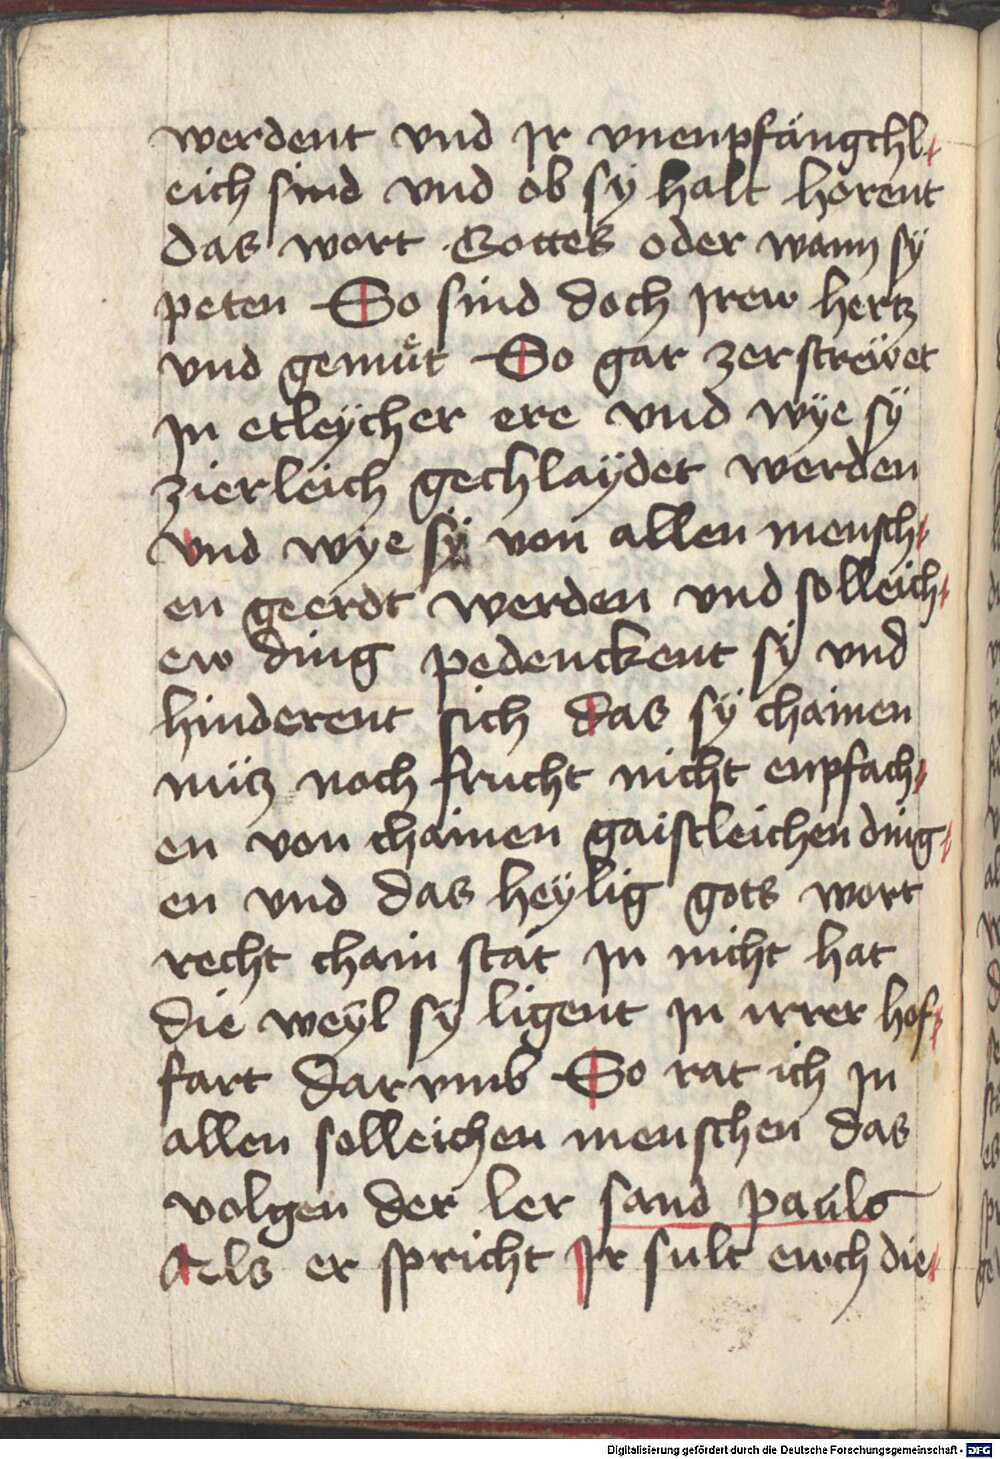 werdent vnd jr vnenpfängchl-
eich sind vnd ob sÿ halt horent
das wort Gottes oder wann sÿ
peten So sind doch jrew hertz
vnd gemuͤt So gar zerströwet
jn etleÿcher ere vnd wÿe sÿ
zierleich gechlaÿdet werden
vnd wÿe sÿ von allen mensch-
en geerdt werden vnd solleich-
ew ding pedenckent sÿ vnd
hinderent sich das sÿ chainen
nütz noch frucht nicht enpfach-
en von chainen gaistleichen ding-
en vnd das heÿlig gots wort
recht chain stat jn nicht hat
die weÿl sÿ ligent jn irrer hof-
fart dar vmb So rat ich jn
allen solleichen menschen das
volgen der ler sand pauls
Als er spricht jr sult ewch die-
Digitalisierung gefördert durch die Deutsche Forschungsgemeinschaft - DFG